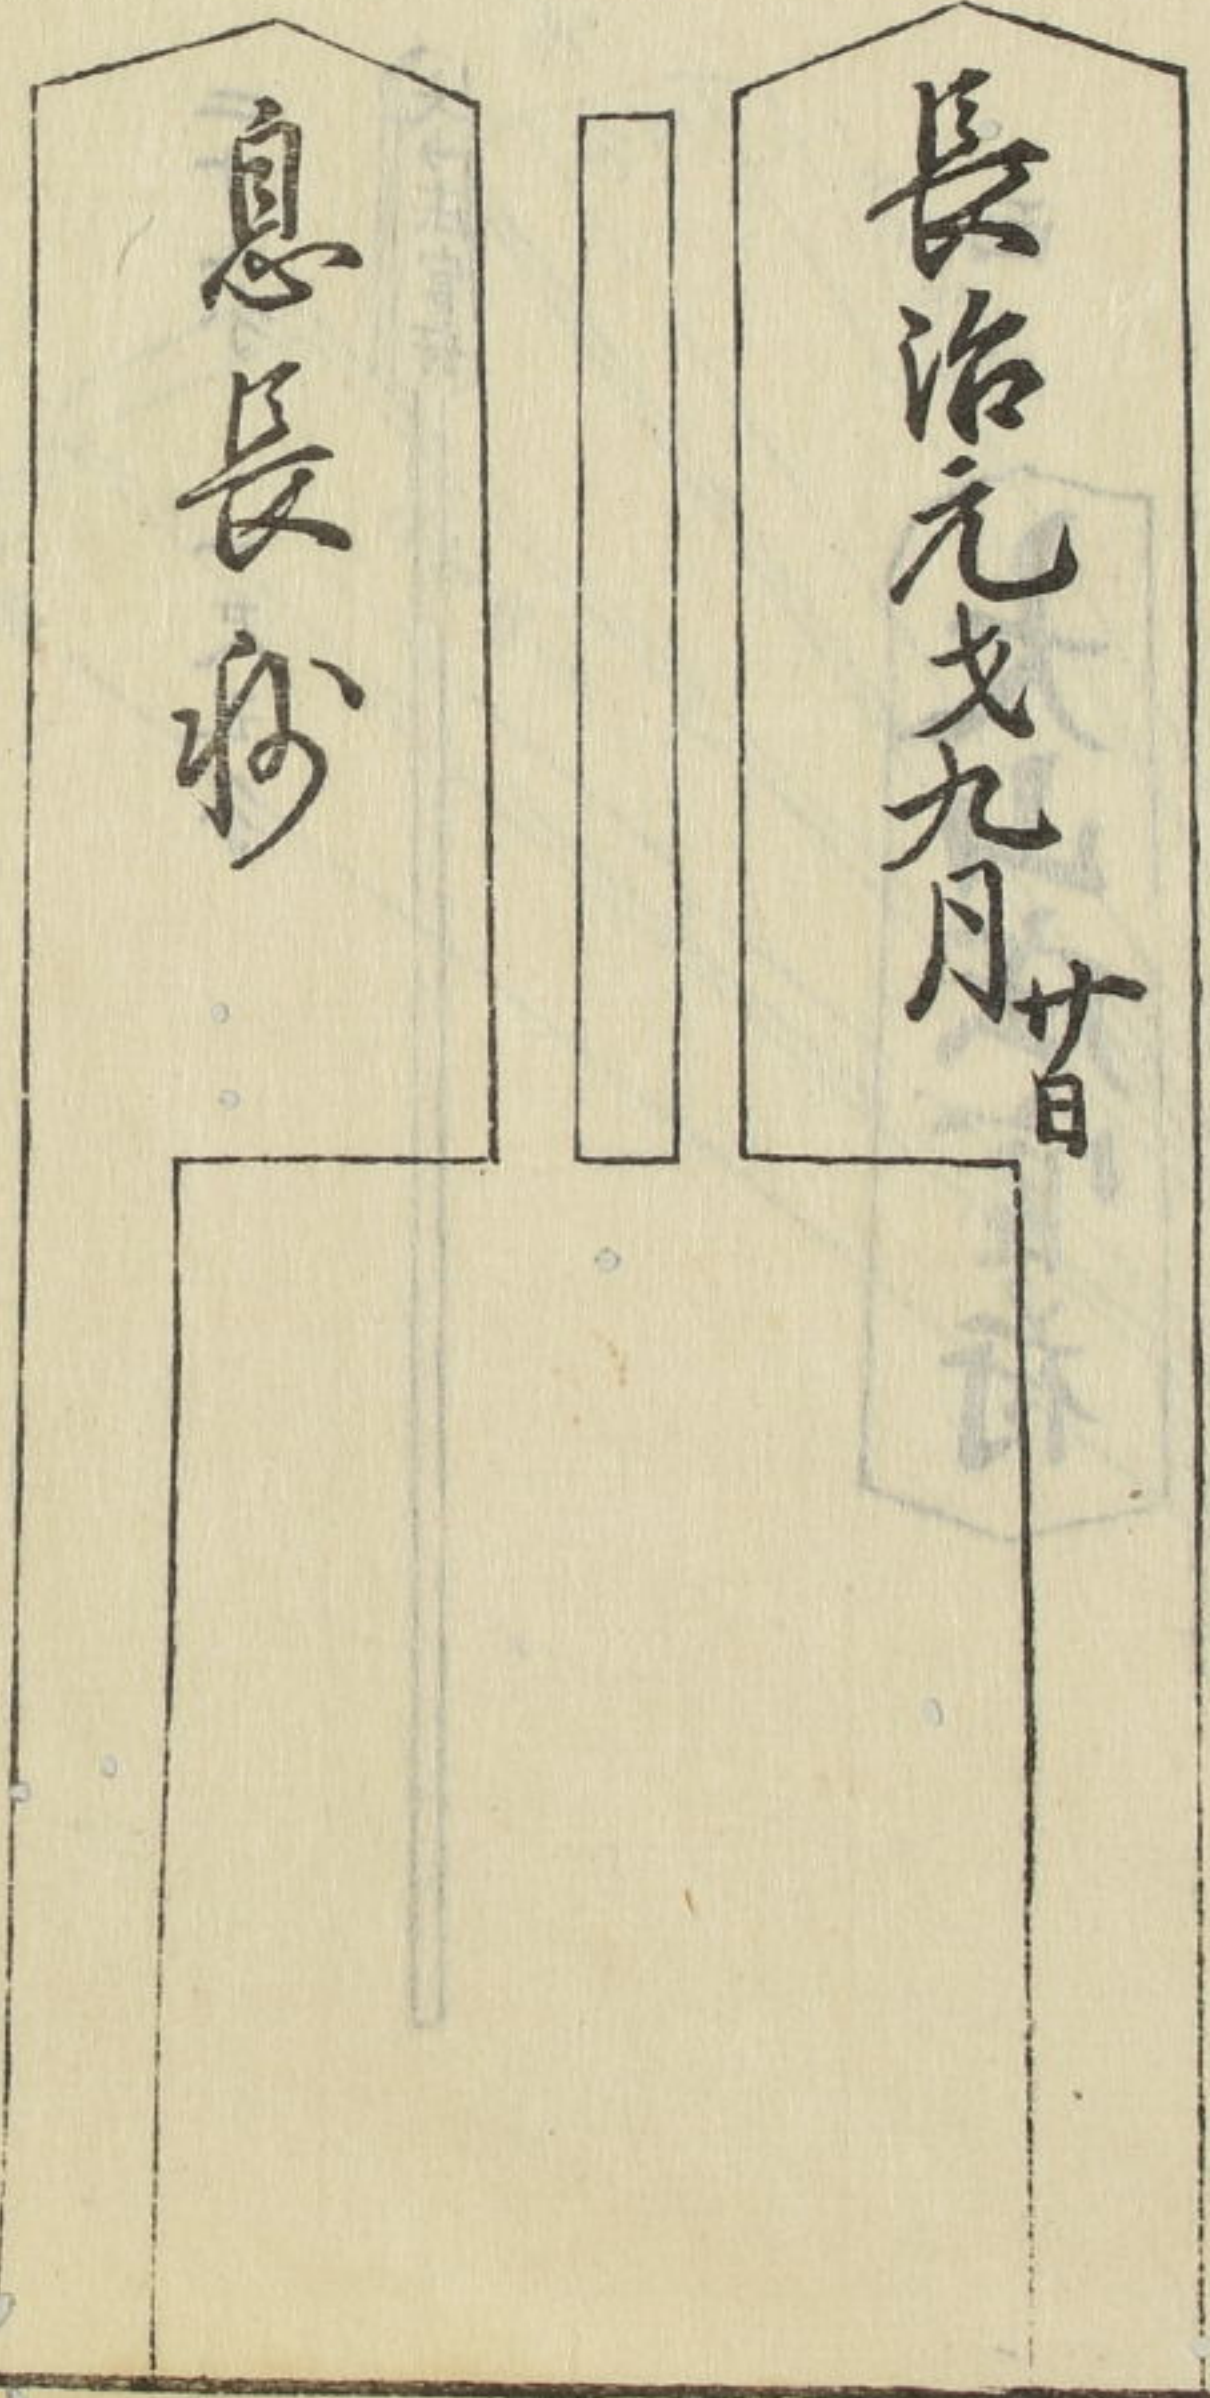 長治元戈九月廿日
息長